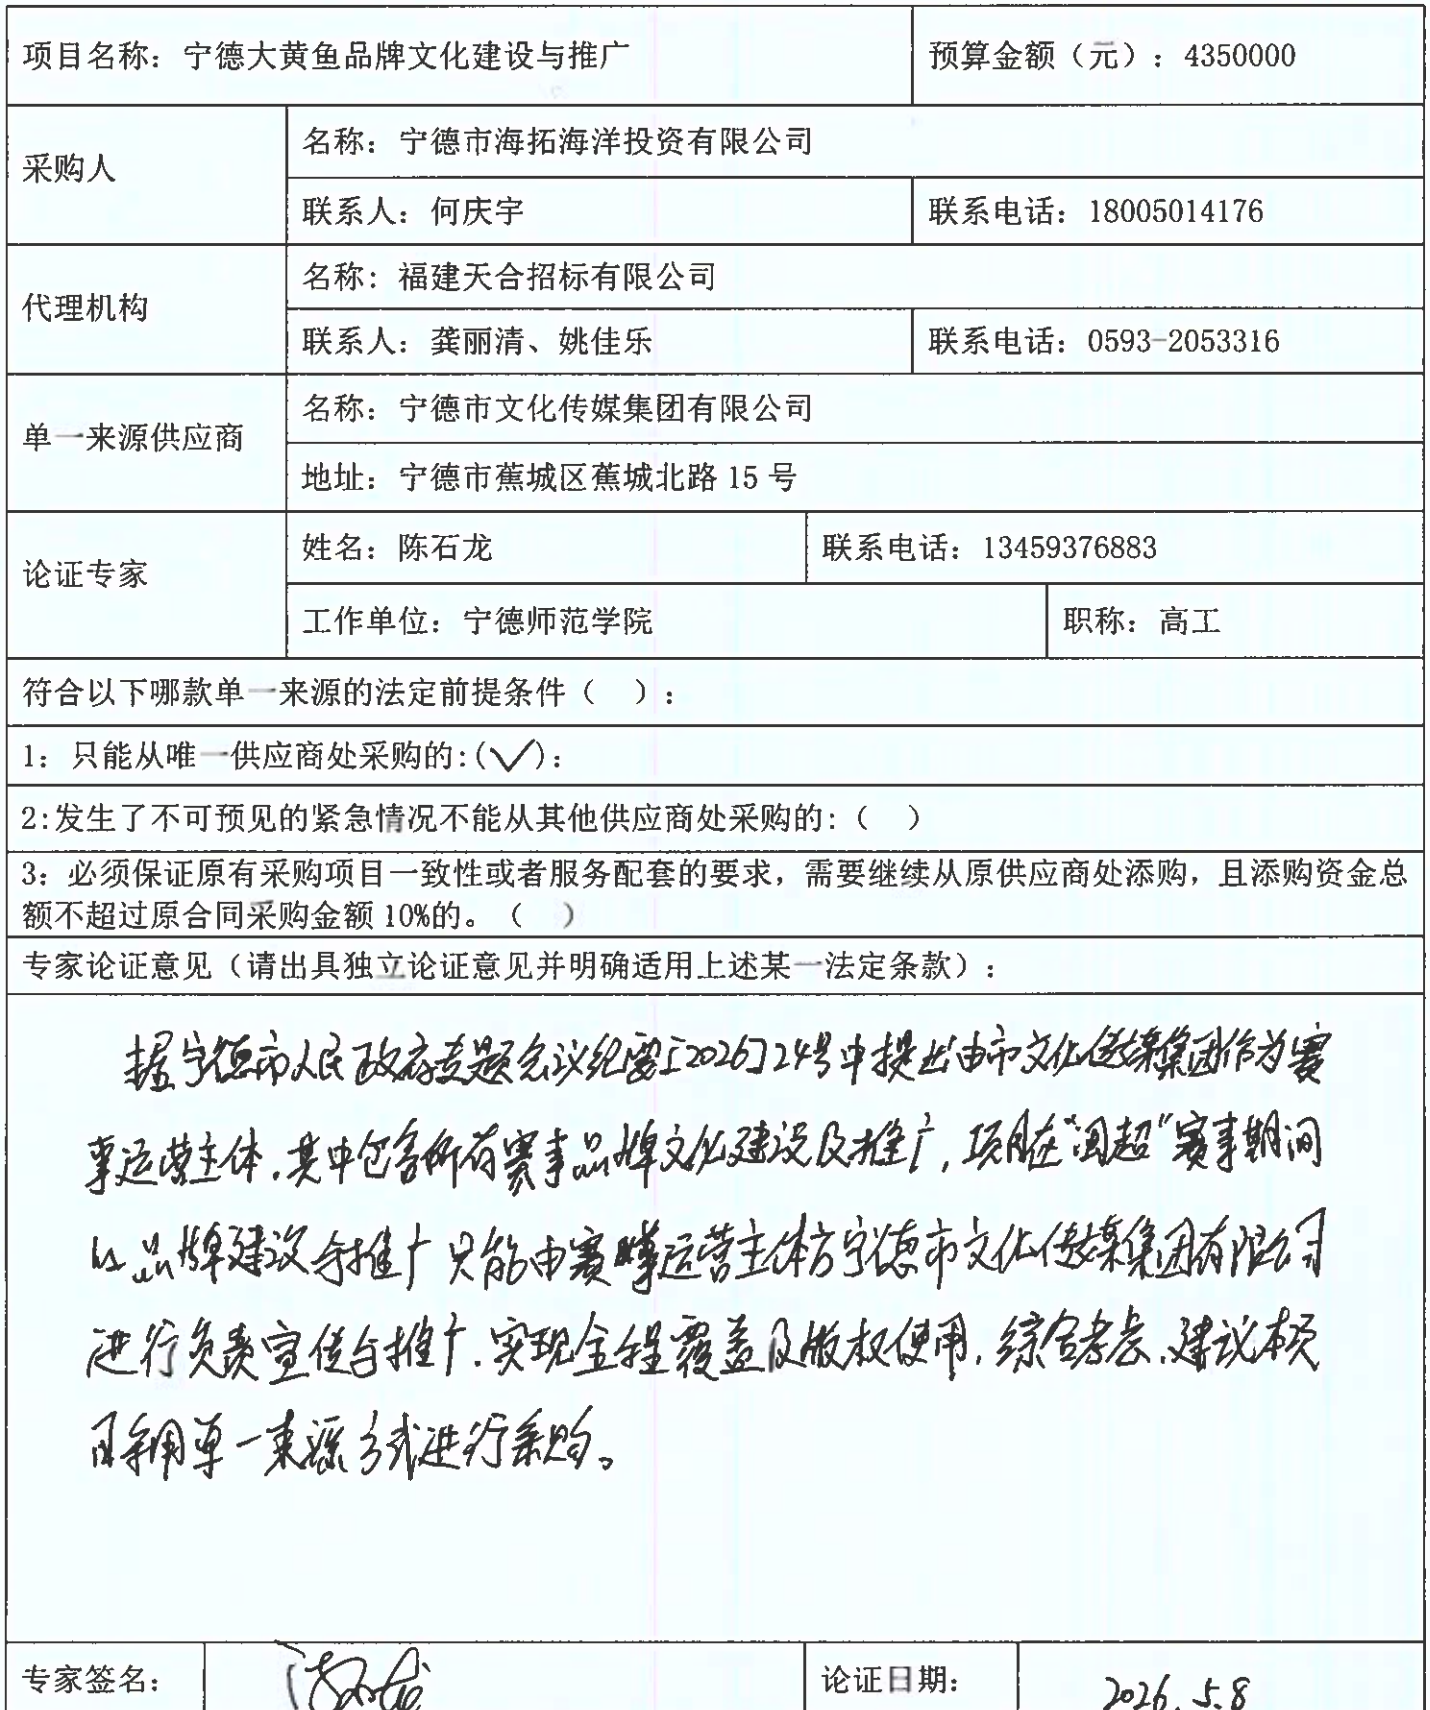 项目名称：宁德大黄鱼品牌文化建设与推广
预算金额（元）：4350000
采购人
名称：宁德市海拓海洋投资有限公司
联系人：何庆宇
联系电话：18005014176
代理机构
名称：福建天合招标有限公司
联系人：龚丽清、姚佳乐
联系电话：0593-2053316
单一来源供应商
名称：宁德市文化传媒集团有限公司
地址：宁德市蕉城区蕉城北路 15 号
论证专家
姓名：陈石龙
联系电话：13459376883
工作单位：宁德师范学院
职称：高工
符合以下哪款单一来源的法定前提条件（ ）：
1：只能从唯一供应商处采购的:(✓)：
2:发生了不可预见的紧急情况不能从其他供应商处采购的:（ ）
3：必须保证原有采购项目一致性或者服务配套的要求，需要继续从原供应商处添购，且添购资金总
额不超过原合同采购金额 10%的。（ ）
专家论证意见（请出具独立论证意见并明确适用上述某一法定条款）：
据宁德市人民政府专题会议纪要[2026]24号中提出由市文化传媒集团作为赛
事运营主体，其中包含所有赛事品牌文化建设及推广，项目在“闽超”赛事期间
以品牌建设与推广只能由赛事运营主体方宁德市文化传媒集团有限公司
进行负责宣传与推广，实现全程覆盖及版权使用，综合考虑，建议本项
目采用单一来源方式进行采购。
专家签名：
陈石龙
论证日期：
2026.5.8